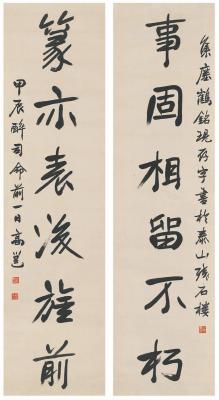 集瘞鶴銘現存字書於泰山殘石樓
事固相留不朽
篆亦表後旌前
甲辰醉司命前一日高邕